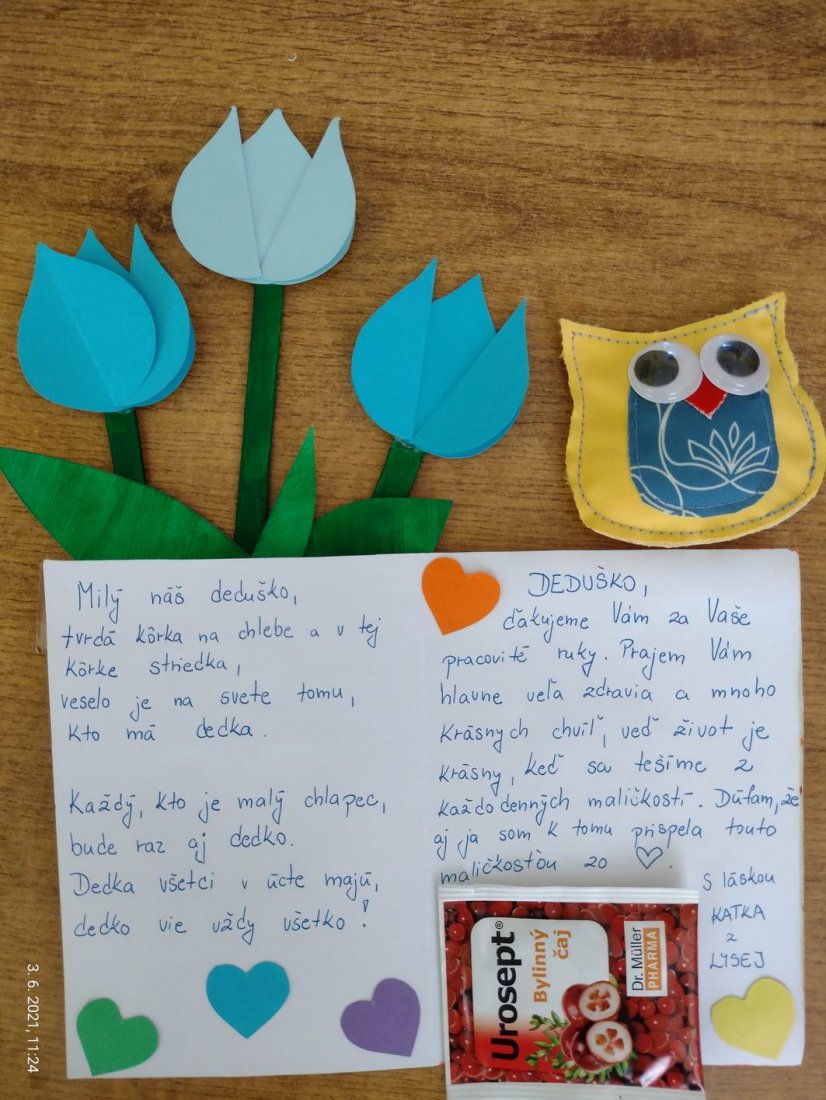 Milý náš deduško,
tvrdá kôrka na chlebe a v tej
kôrke striedka,
veselo je na svete tomu,
kto má dedka.
Každý, kto je malý chlapec,
bude raz aj dedko.
Dedka všetci v úcte majú,
dedko vie vždy všetko!
DEDUŠKO,
ďakujeme Vám za Vaše
pracovité ruky. Prajem Vám
hlavne veľa zdravia a mnoho
krásnych chvíľ, veď život je
krásny, keď sa tešíme z
každodenných maličkostí. Dúfam, že
aj ja som k tomu prispela touto
maličkosťou zo ♡.
S láskou
KATKA
z
LYSEJ
Urosept®
Bylinný
čaj
Dr. Müller
PHARMA
3. 6. 2021, 11:24